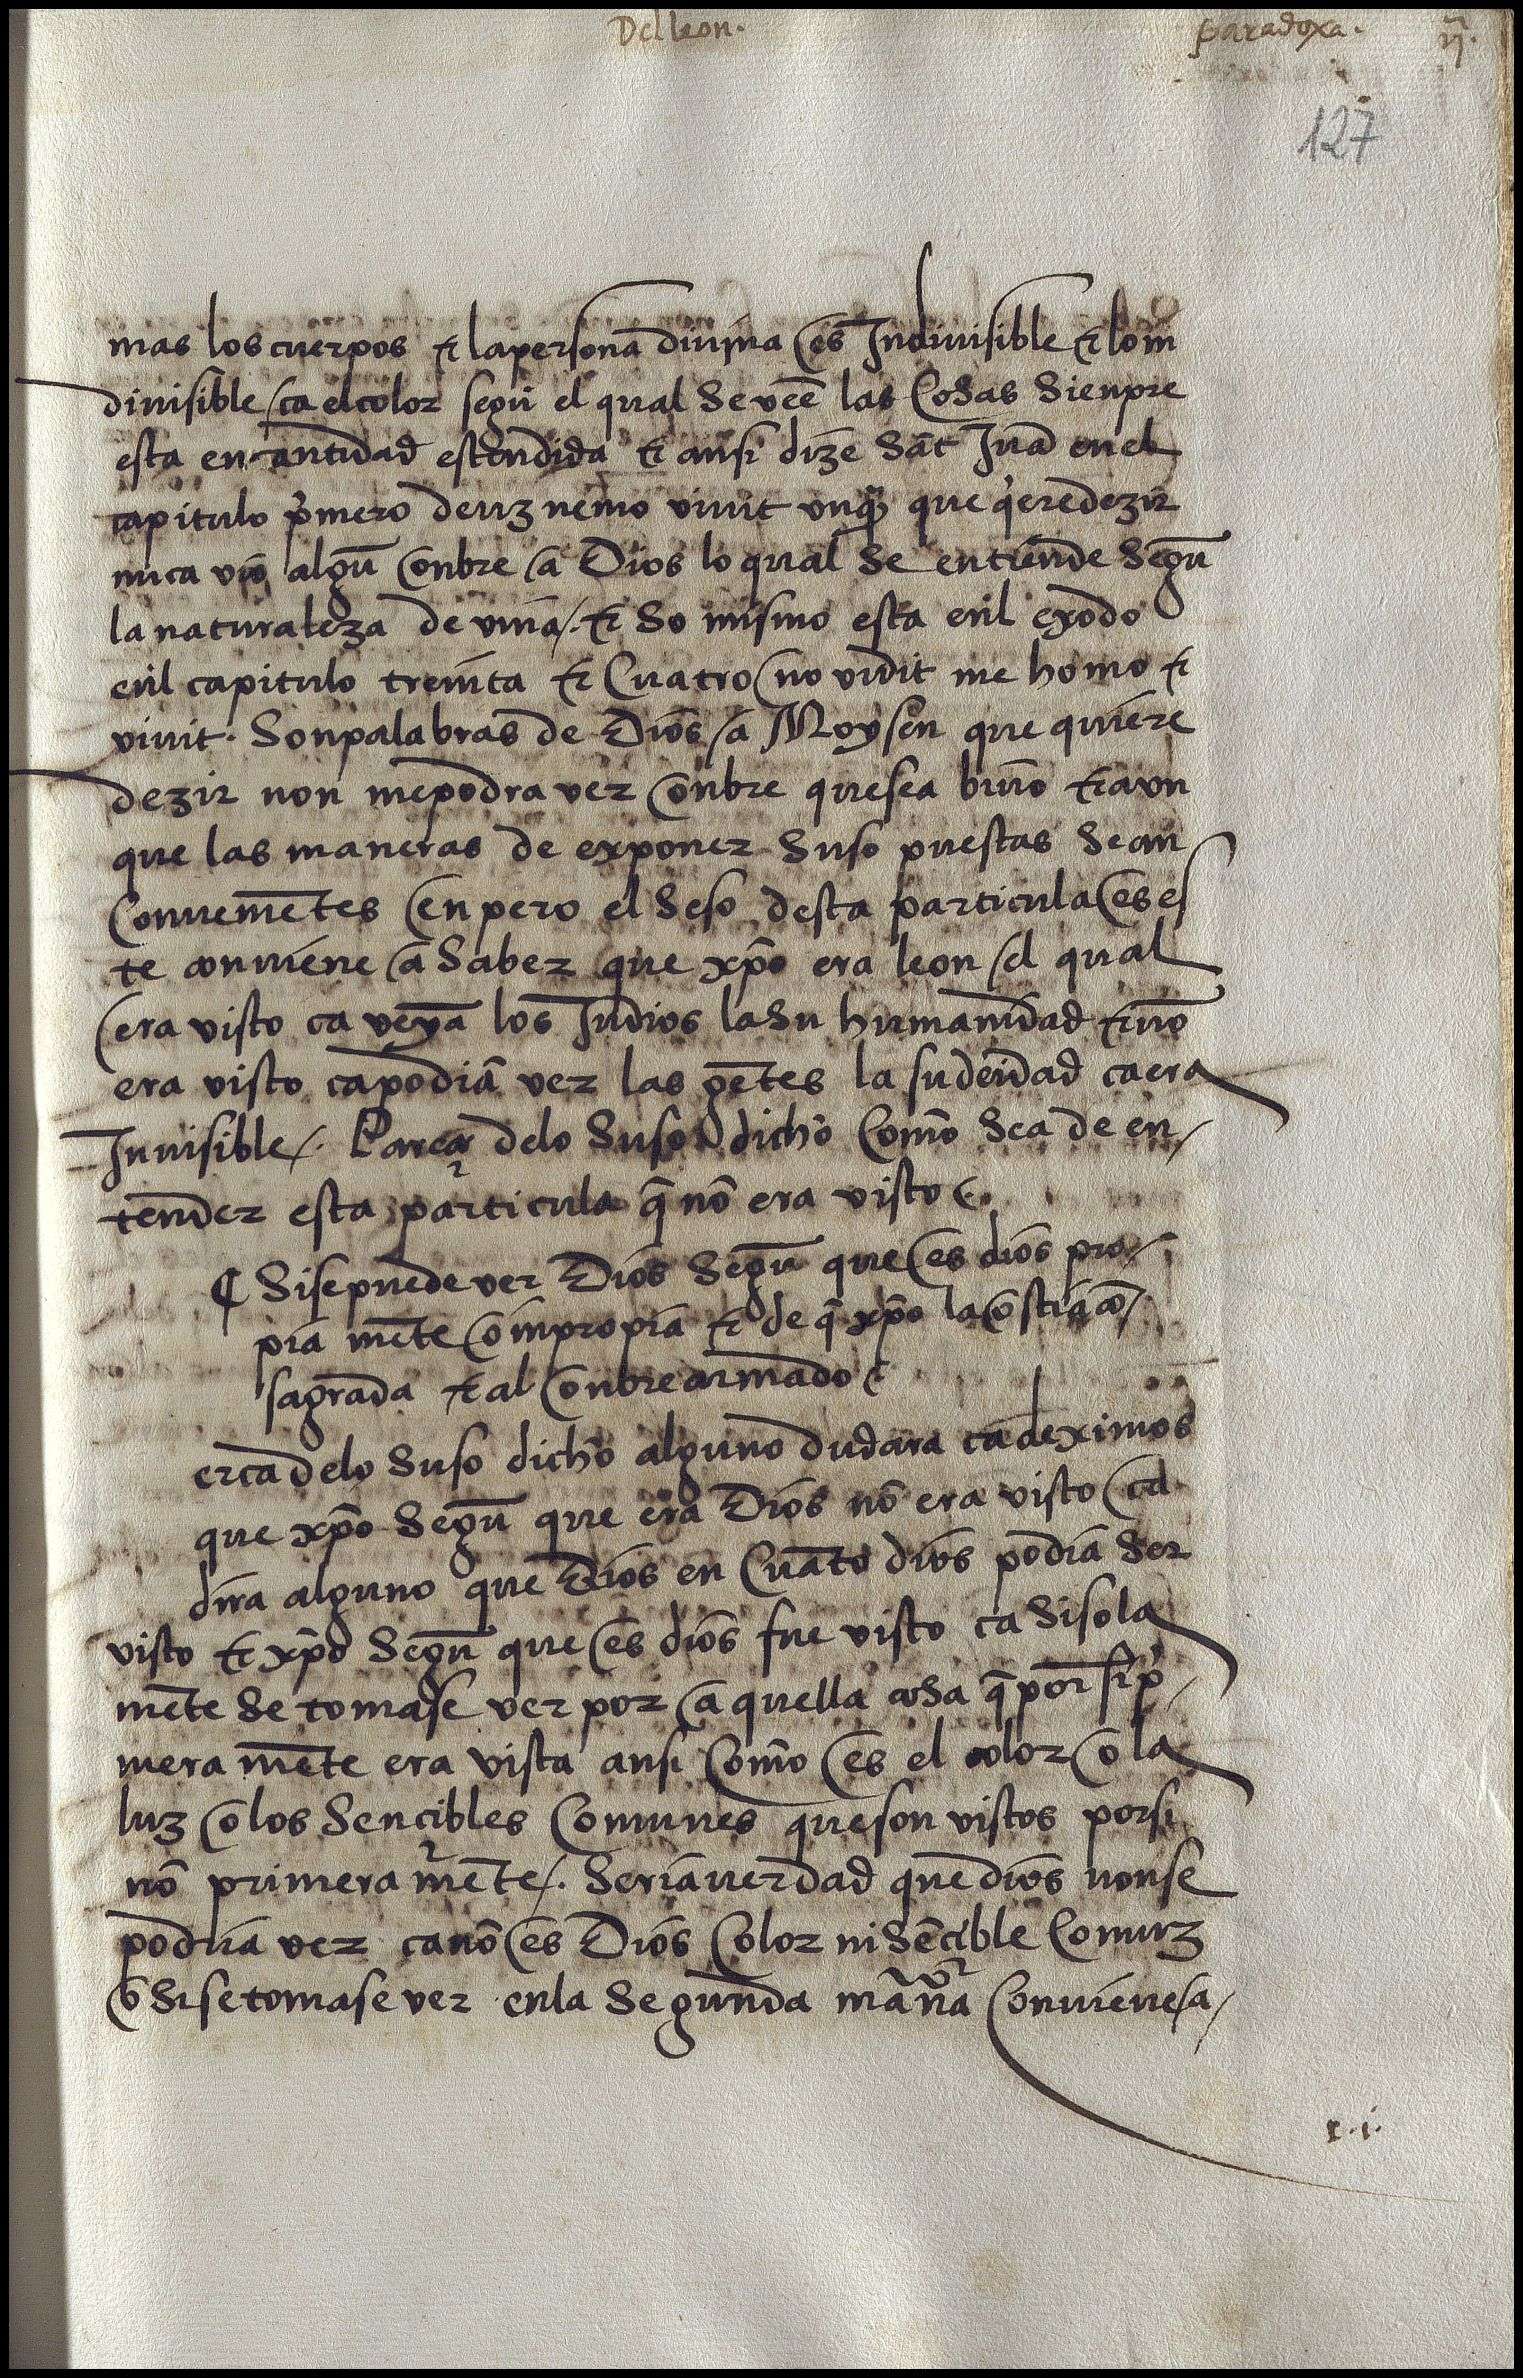 Del leon. paradoxa. ij.
127
mas los cuerpos & la persona diuina es Indiuisible & lo in
diuisible ca el color segũ el qual Se veẽ las Cosas Sienpre
esta en cantidad estendida & ansi dize Sãt Juã en el
capitulo pͥmero deuz nemo viuit vnq̃ que qͥere dezir
nuca vio algũ onbre a Dios lo qual Se entiende Segũ
la naturaleza de vina /. & So mismo esta enl exodo
enl capitulo treinta & Cuatro no vidit me homo &
viuit. Son palabras de Dios a Moysen que quiere
dezir non me podra ver onbre que sea biuo & avn
que las maneras de exponer Suso puestas Sean
Conuenientes enpero el Seso desta particula es es
te conuiene a Saber que xp̃o era leon el qual
era visto ca veyã los Judios la Su humanidad & no
era visto ca podiã ver las gẽtes la su deidad ca era
Inuisible /. Parece delo Suso dicho Como Sea de en /
tender esta particula q̃ nõ era visto.
¶ Si se puede ver Dios Segũ que es dios pro /
pia mẽte o inpropia & de q̃ xp̃o la ostia cõ /
sagrada & al onbre armado
erca delo Suso dicho alguno dudara ca deximos
que xp̃o Segũ que era Dios nõ era visto ca
dira alguno que Dios en Cuãto dios podia Ser
visto & xp̃o Segũ que es dios fue visto ca Si sola
mẽte Se tomase ver por a quella cosa q̃ por si pͥ /
mera mẽte era vista ansi Como es el color o la
luz o los Sencibles Comunes que son vistos por si
nõ primera mẽte /. Seria verdad que dios non se
podria ver ca nõ es Dios Color ni Sẽcible Comuz
o Si se tomase ver en la Segunda mãna Conuiene a /
r. i.